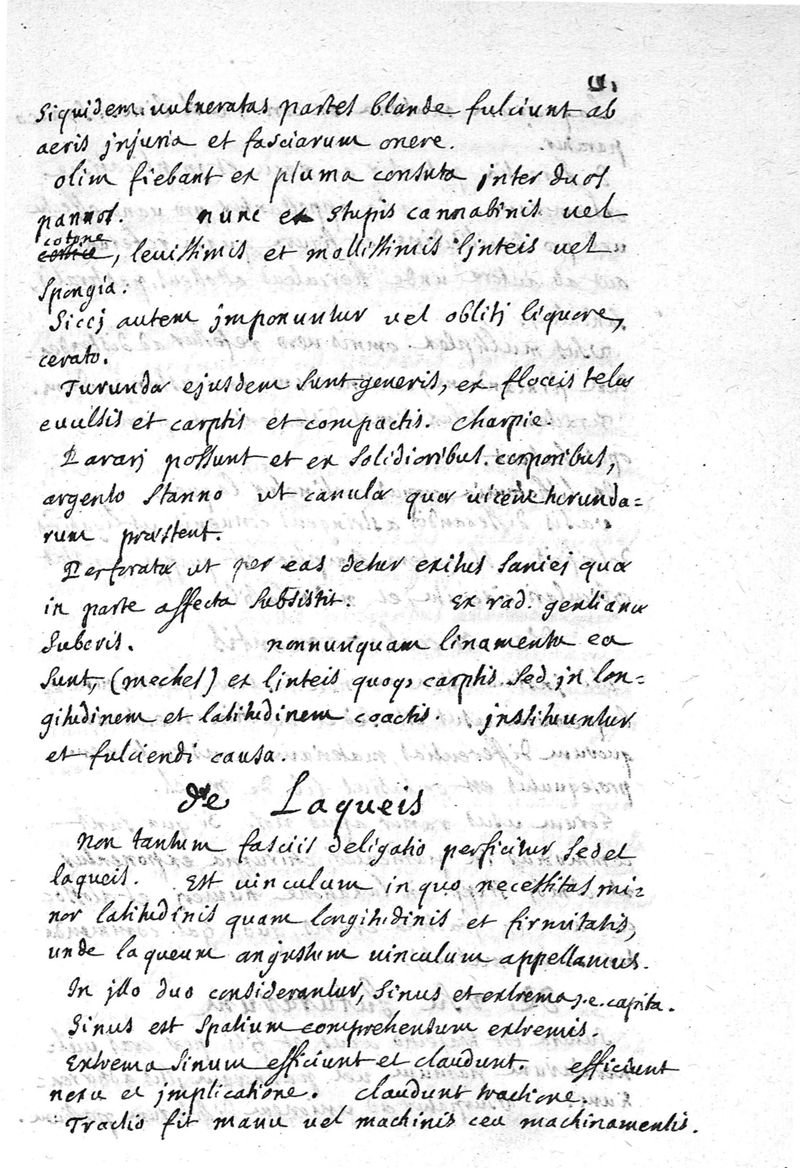 Siquidem vulneratas partes blande fulciunt ab
aeris injuria et fasciarum onere.
olim fiebant ex pluma consuta inter duos
pannos. nunc ex stupis cannabinis vel
cotone
, levissimis et mollissimis linteis vel
spongia.
Sicci autem imponuntur vel obliti liquore,
cerato.
Turundæ ejusdem sunt generis, ex floccis telæ
evulsis et carptis et compactis. charpie.
Parari possunt et ex solidioribus corporibus,
argento stanno ut canulæ quæ vicem turunda=
rum præstent.
Perforatæ ut per eas detur exitus saniei quæ
in parte affecta subsistit. Ex rad. gentianæ
suberis. nonnunquam linamenta ea
sunt, (meches) ex linteis quoqs carptis sed in lon=
gitudinem et latitudinem coactis. instituuntur
et fulciendi causa.
de Laqueis
Non tantum fasciis deligatio perficitur sed et
laqueis. Est vinculum in quo necessitas mi=
nor latitudinis quam longitudinis et firmitatis,
unde laqueum angustum vinculum appellamus.
In illo duo considerantur, sinus et extrema i.e. capita.
Sinus est spatium comprehensum extremis.
Extrema sinum efficiunt et claudunt. efficiunt
nexu et implicatione. claudunt tractione.
Tractio fit manu vel machinis ceu machinamentis.